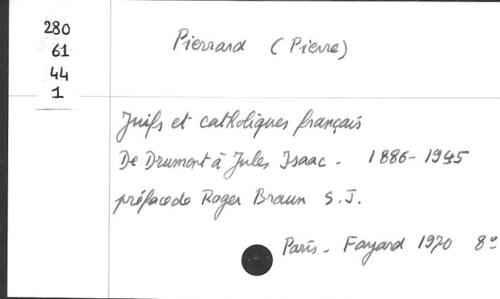 280
61
44
1
Pierrard (Pierre)
Juifs et catholiques français
De Drumont à Jules Isaac - 1886-1945
préface de Roger Braun S.J.
Paris - Fayard 1970 8°